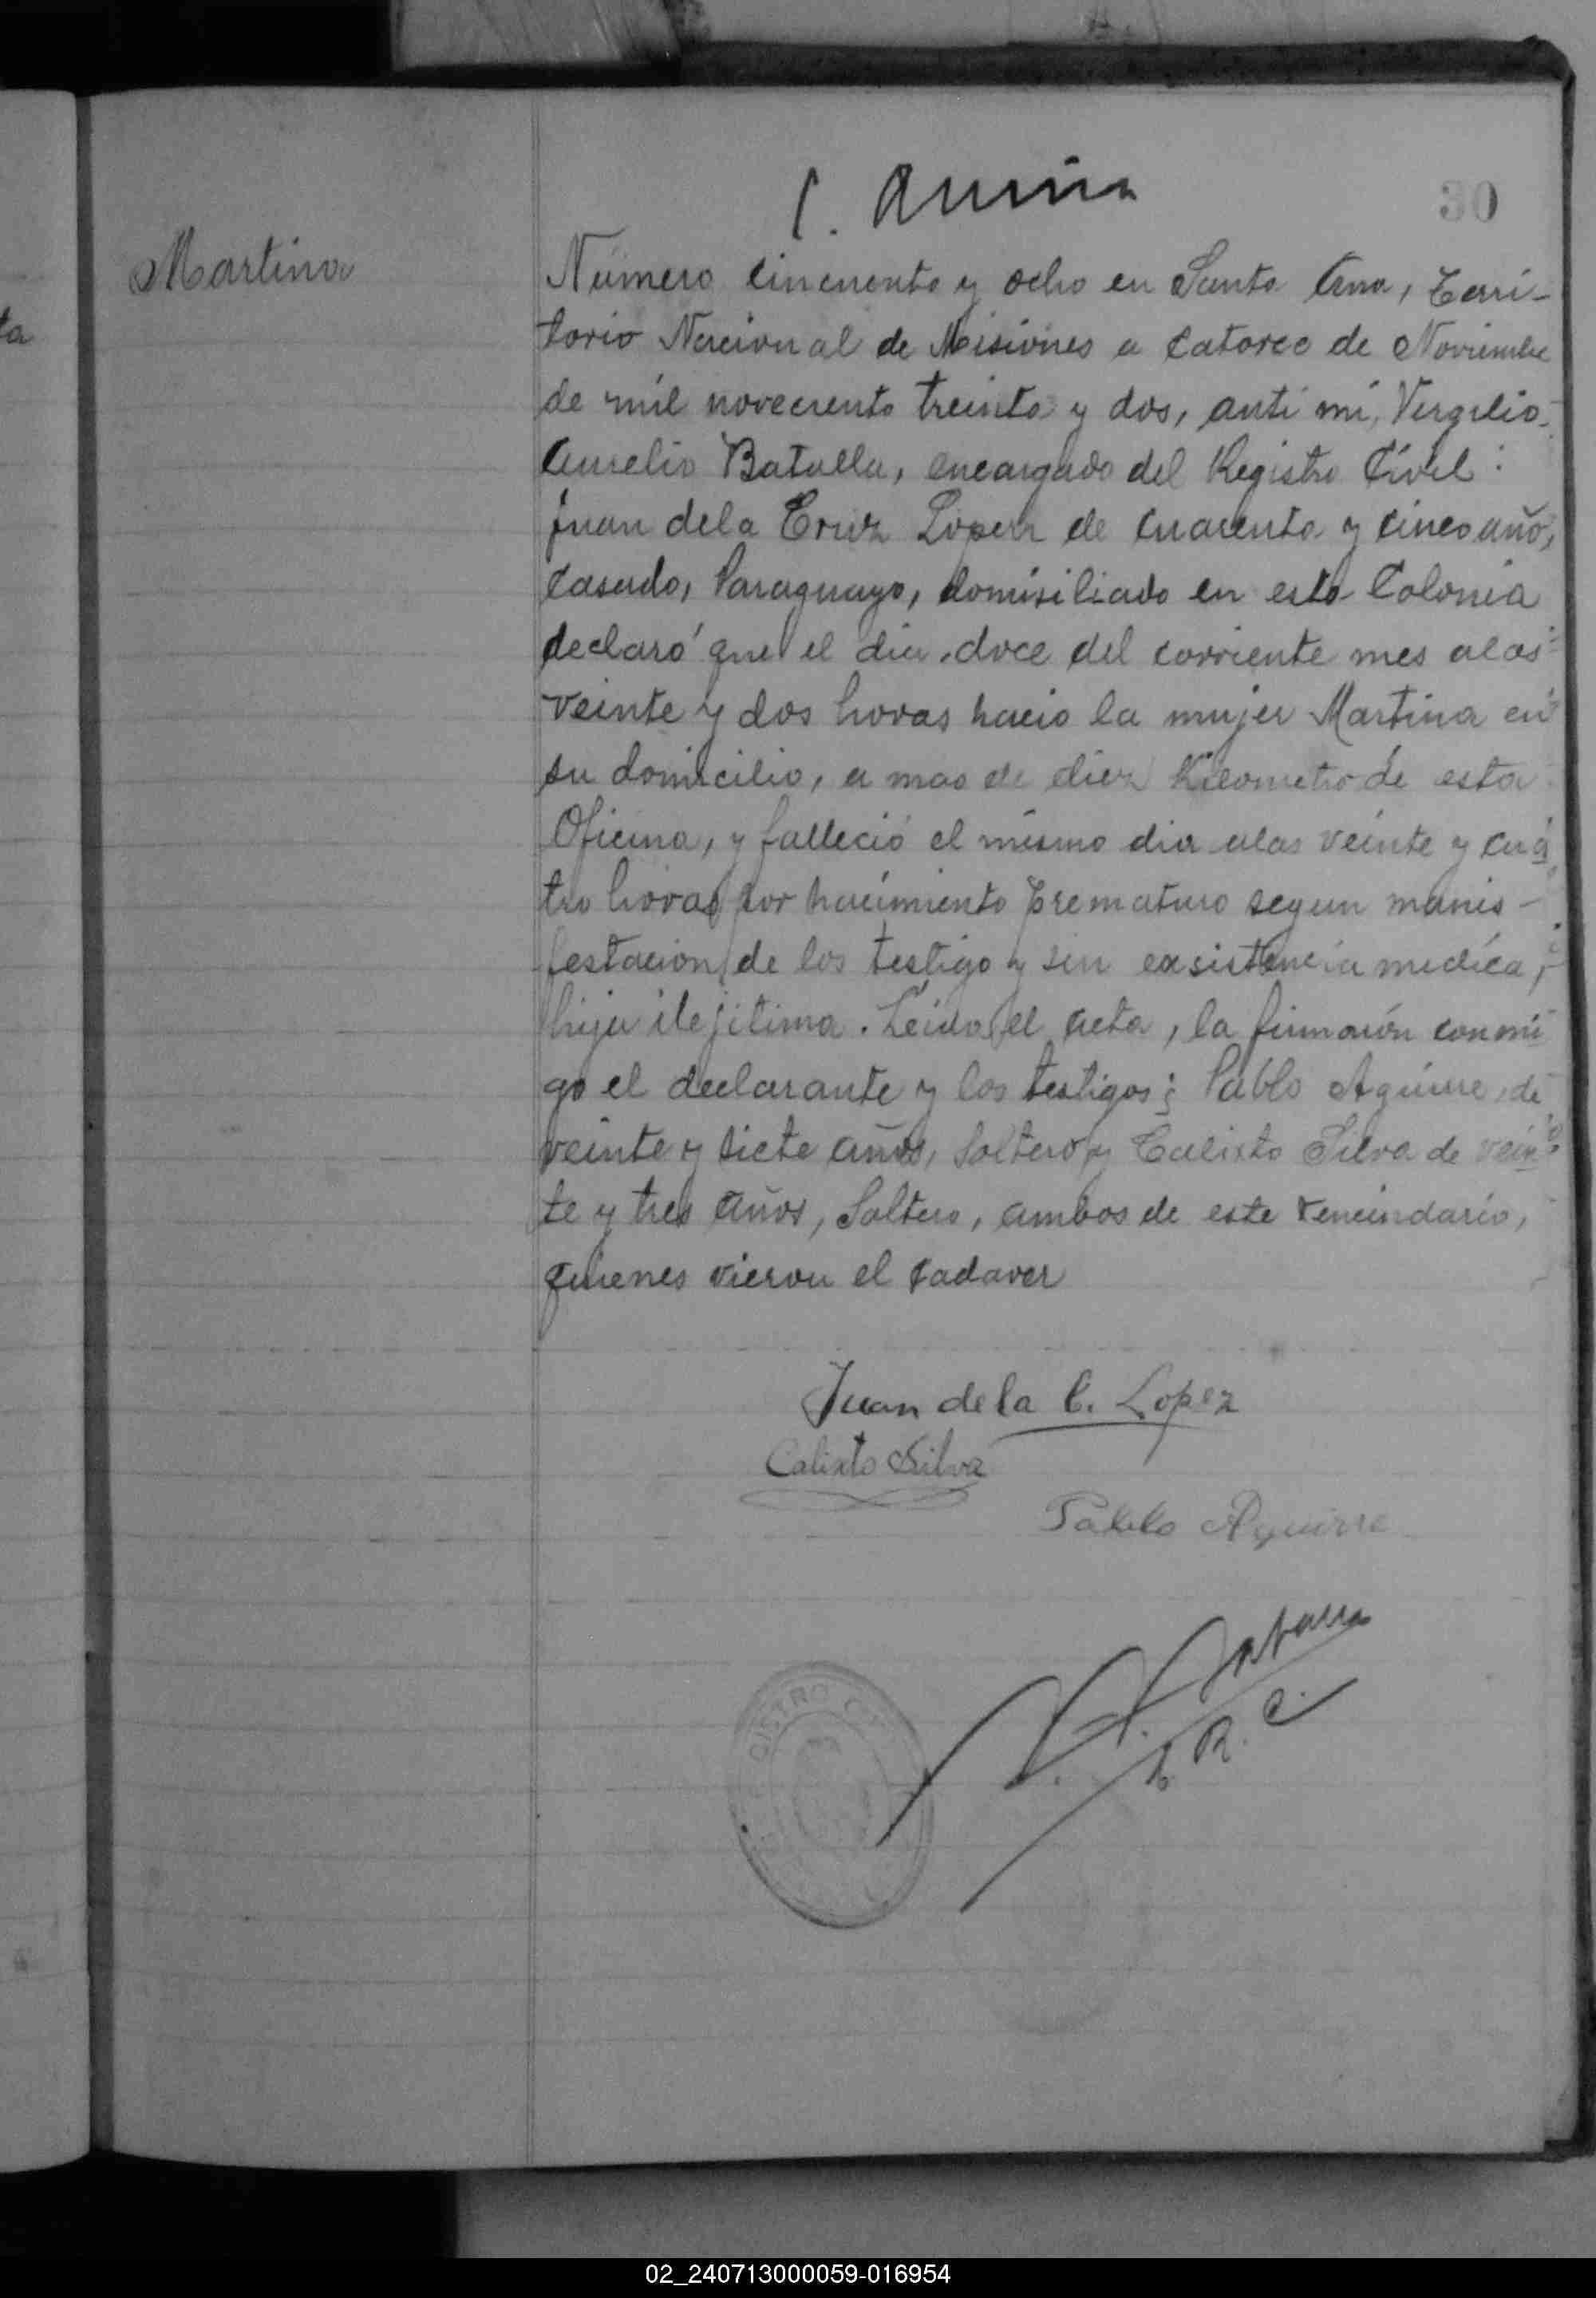 30
Martina
Número cincuenta y ocho en Santa Ana, Terri-
torio Nacional de Misiones a catorce de Noviembre
de mil noveciento treinta y dos, anti mi, Virgilio
Aurelio Batalla, encargado del Registro Civil:
juan dela Cruz Lopez de cuarenta y cinco año,
casado, Paraguayo, domisiliado en esta Colonia
declaró que el dia doce del corriente mes alas
veinte y dos horas nacio la mujer Martina en
su domicilio, a mas de diez Kilometro de esta
Oficina, y falleció el mismo dia alas veinte y cua
tro horas por nacimiento prematuro segun manis-
festacion de los testigo y sin easistencia medica,
hija ilejitima. Leida el acta, la firmarón conmi
go el declarante y los testigos; Pablo Aguirre, de
veinte y siete años, soltero y Calixto Silva de vein
te y tres años, Soltero, ambos de este vencindario,
quienes vieron el cadaver
Juan dela C. Lopez
Calixto Silva
Pablo Aguirre
REGISTRO
02_240713000059-016954